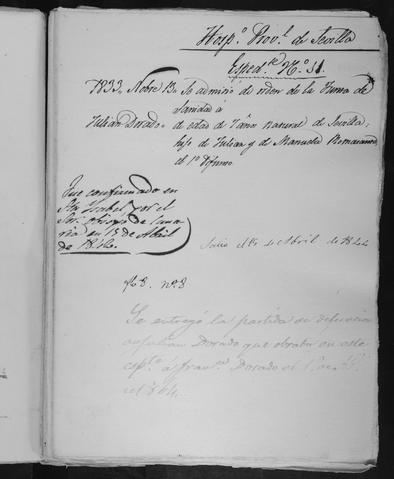 Hosp.º Prov.l de Sevilla
Esped.te N.º 51.
1833. Nobre 13. Se admitió de orden de la Junta de
Sanidad á
Julian Dorado. de edad de 7 años natural de Sevilla,
hijo de Julian y de Manuela
el 1º difunto
Fue confirmado en
Sta Isabel por el
Sor. Obispo de Cana
ria en 15 de Abril
de 1844.
Salió el 4 Abril de 1844
fº 8. nº 8
Se entregó la partida de defuncion
de Julian Dorado que obraba en este
esp.te á Fran.co Dorado el 1º
del 864.